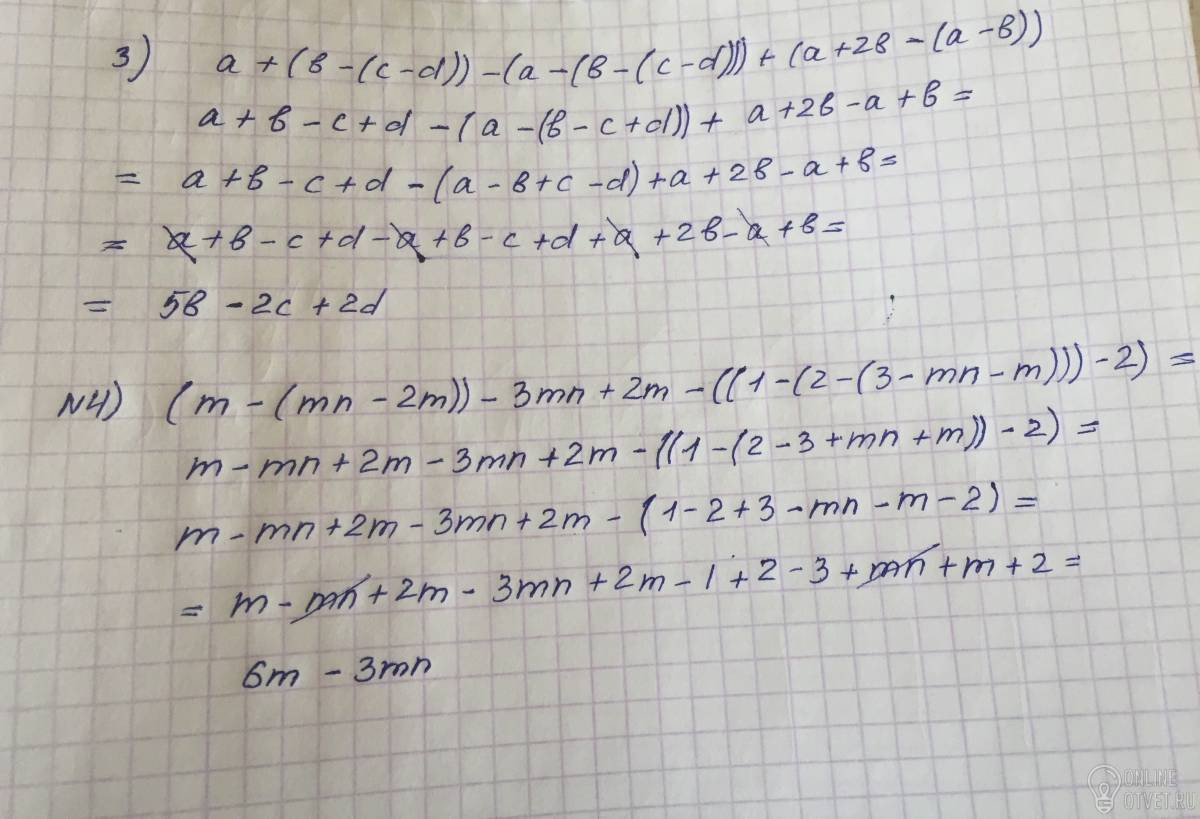 3) a + (в - (c - d)) - (a - (в - (c - d))) + (a + 2в - (a - в))
a + в - c + d - (a - (в - c + d)) + a + 2в - a + в =
= a + в - c + d - (a - в + c - d) + a + 2в - a + в =
= a + в - c + d - a + в - c + d + a + 2в - a + в =
= 5в - 2c + 2d
N4) (m - (mn - 2m)) - 3mn + 2m - ((1 - (2 - (3 - mn - m))) - 2) =
m - mn + 2m - 3mn + 2m - ((1 - (2 - 3 + mn + m)) - 2) =
m - mn + 2m - 3mn + 2m - (1 - 2 + 3 - mn - m - 2) =
= m - mn + 2m - 3mn + 2m - 1 + 2 - 3 + mn + m + 2 =
6m - 3mn
ONLINE
OTVET.RU